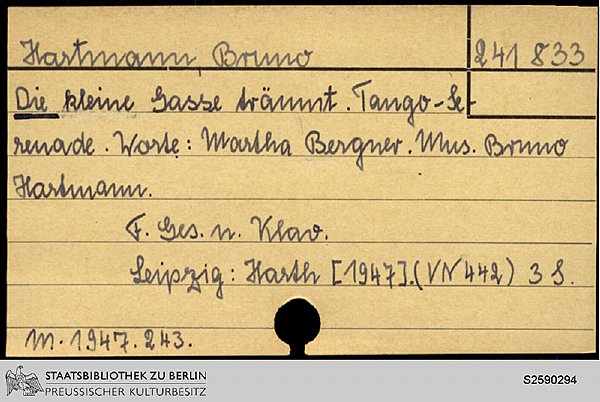 Hartmann, Bruno
241 833
Die kleine Gasse träumt. Tango-Se-
renade. Worte: Martha Bergner. Mus. Bruno
Hartmann.
F. Ges. u. Klav.
Leipzig: Harth [1947]. (VN 442) 3 S.
M. 1947. 243.
STAATSBIBLIOTHEK ZU BERLIN
PREUSSISCHER KULTURBESITZ
S2590294